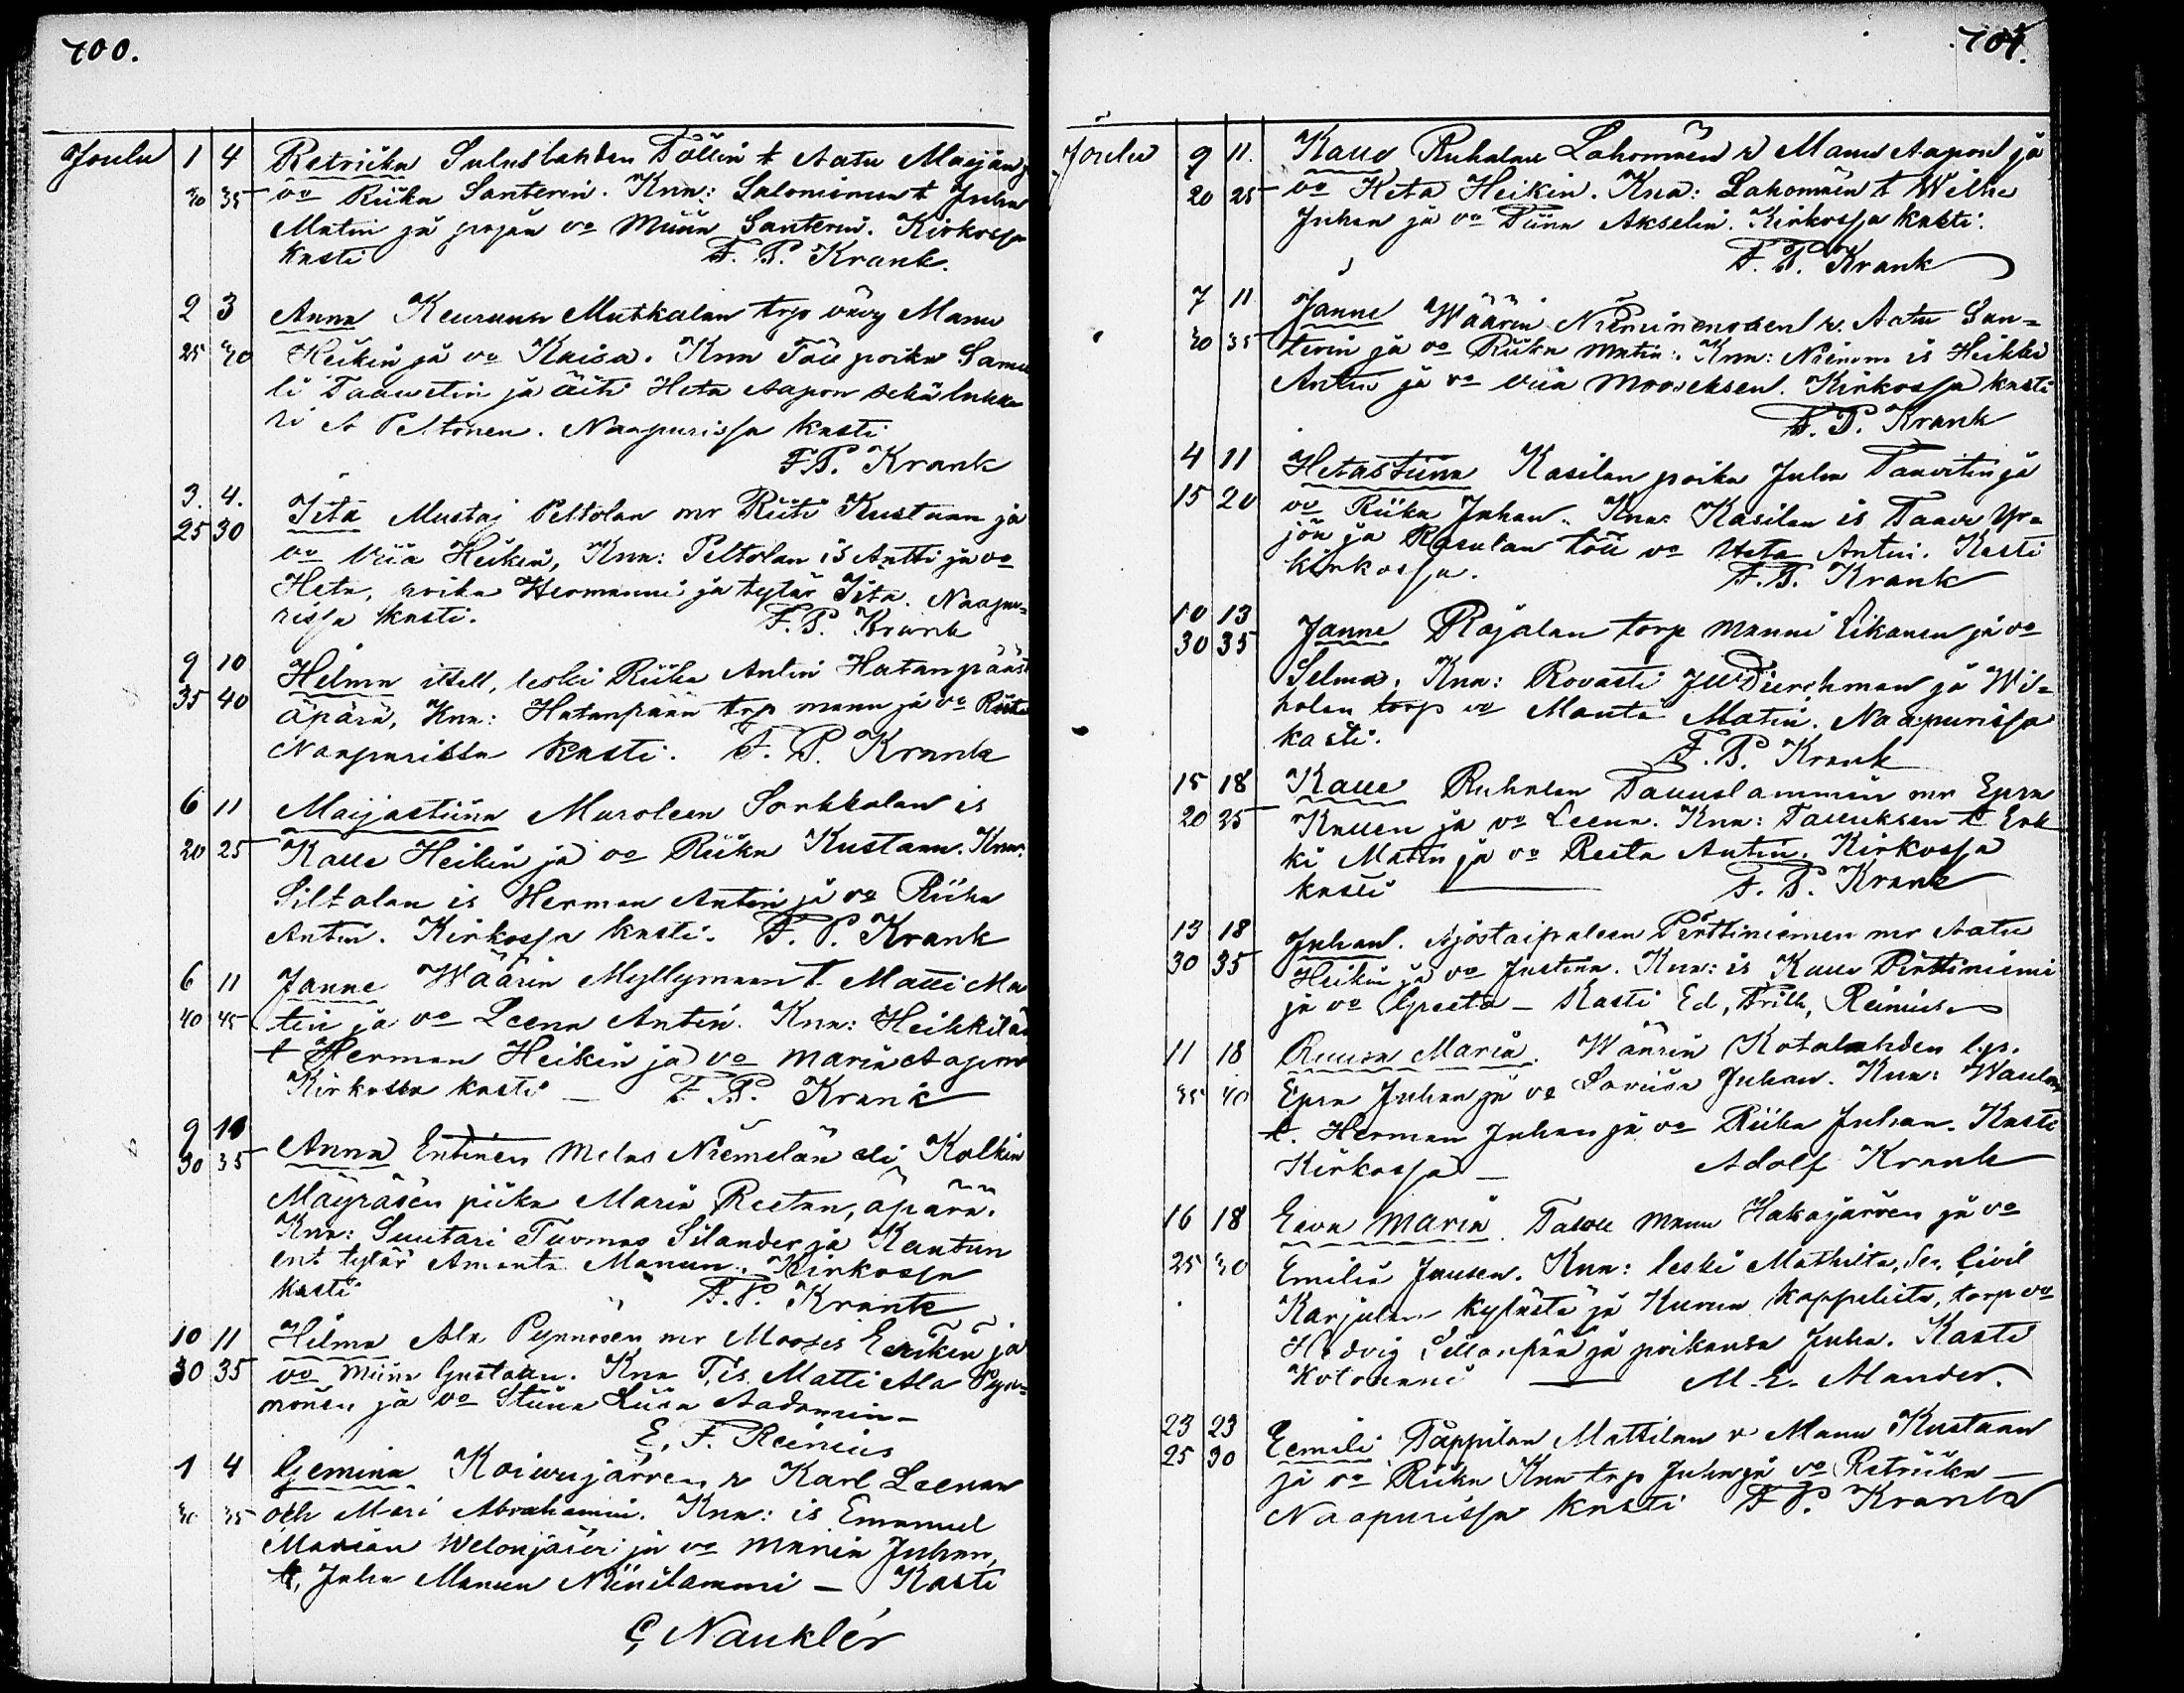 700.
Joulu 1 4 Retriika Suluslahden Töllin t Aatu Maijan
30 35 vo Riika Santerin. Knn: Salomiemen t Juha
Matin ja pojan vo Miina Santerin. Kirkossa
kasti F. P. Krank.
2 3 Anna Keuruun Mutkalan trp vävy Manu
25 30 Heikin ja vo Kaisa. Knn Töll poika Samu
li Taavetin ja äiti Heta Aapon sekä lukka
ri A Peltonen. Naapurissa kasti
F.P. Krank
3. 4. Iita Mustaj Peltolan mr Riiti Kustaan ja
25 30 vo Viia Heikin, Knn: Peltolan is Antti ja vo
Heta, poika Hermanni ja tytär Iita. Naapu=
rissa kasti. F.P. Krank
9 10 Helma itsell, leski Riika Antin Hatanpääst
35 40 äpärä, Knn: Hatanpään trp manu ja vo Riita
Naapurissa kasti. F. P. Krank
6 11 Maijastiina Muroleen Sorkkalan is
20 25 Kalle Heikin ja vo Riika Kustaan. Knn:
Siltalan is Herman Antin ja vo Riika
Antin. Kirkossa kasti. F. P. Krank
6 11 Janne Väärin Myllymaan t. Matti Ma
40 45 tin ja vo Leena Antin. Knn: Heikkilän
t Herman Heikin ja vo Maria Aapon
Kirkossa kasti — F. P. Krank
9 10
30 35 Anna Entinen Melas Niemelän eli Kolkin
Mäyräsen piika Maria Reetan, äpärä.
Knn: Suutari Tuomas Silander ja Kantun
ent. tytär Amanta Manun. Kirkossa
kasti F.P. Krank
10 11 Hilma Ala Pynnösen mr Mooses Eerikin ja
30 35 vo Miina Gustaan. Knn T, is. Matti Ala Pyn=
nönen ja vo Stiina Liisa Aadamin—
E. F. Reinius
1 4 Gemina Koivujärven r Karl Leenan
30 35 och Mari Abrahamin. Knn: is Emanuel
Marian Welonjäsär ja vo Maria Juhan,
t, Juha Manun Niinilammi — Kasti
C, Nauklér
701.
Joulu 9 11. Kalle Ruhalan Lahomäen r Manu Aapon ja
20 25 vo Heta Heikin. Knn: Lahomäen t Wilhe
Juhan ja vo Tiina Akselin. Kirkossa kasti.
F. P. Krank
7 11 Janne Väärin Nieminenosen r. Aatu San=
30 35 terin ja vo Riika Matin. Knn: is Heikki
Antin ja vo Viia Mooseksen. Kirkossa kasti
F. P. Krank
4 11 Hetastiina Kasilan poika Juha Taavetin ja
15 20 vo Riika Juhan. Knn: Kasilan is Taave Yr=
jön ja töll vo Heta Antin. Kasti
kirkossa. F.P. Krank
10 13
30 35 Janne Rajalan torp manni Eikanen ja vo
Selma. Knn: Rovasti Dierchman ja Wil=
holan torp vo Manta Matin. Naapurissa
kasti. F. P. Krank
15 18 Kalle Ruhalan Tauuslammin mr Epra
20 25 Kallen ja vo Leena. Knn: Tauuksen t Erk
ki Matin ja vo Reeta Antin. Kirkossa
kasti — F. P. Krank
13 18 Juhan. Ajostaipaleen Perttiniemen mr Aatu
30 35 Heikin ja vo Justiina. Knn: is Kalle Perttiniemi
ja vo Greeta — Kasti Ed, Frith, Reinius
11 18 Ruusa Maria. Väärin Kotalahden l.p.
35 40 Epra Juhan ja vo Loviisa Juhan. Knn:
t. Herman Juhan ja vo Riika Juhan. Kasti
Kirkossa — Adolf Krank
16 18 Eeva Maria. Talol Manu Hakajärven ja vo
25 30 Emilia Jausen. Knn: leski Mathilta,
Karjulan kylästä ja Kurun kappelista, torp vo
Hedvig Sillanpää ja poikansa Juha. Kasti
Kotonansi — M. E. Mander.
23 23 Eemili Pappilan Mattilan r Manu Kustaan
25 30 ja vo Riika Knn trp Juha ja vo Retriika —
Naapurissa kasti F P. Krank